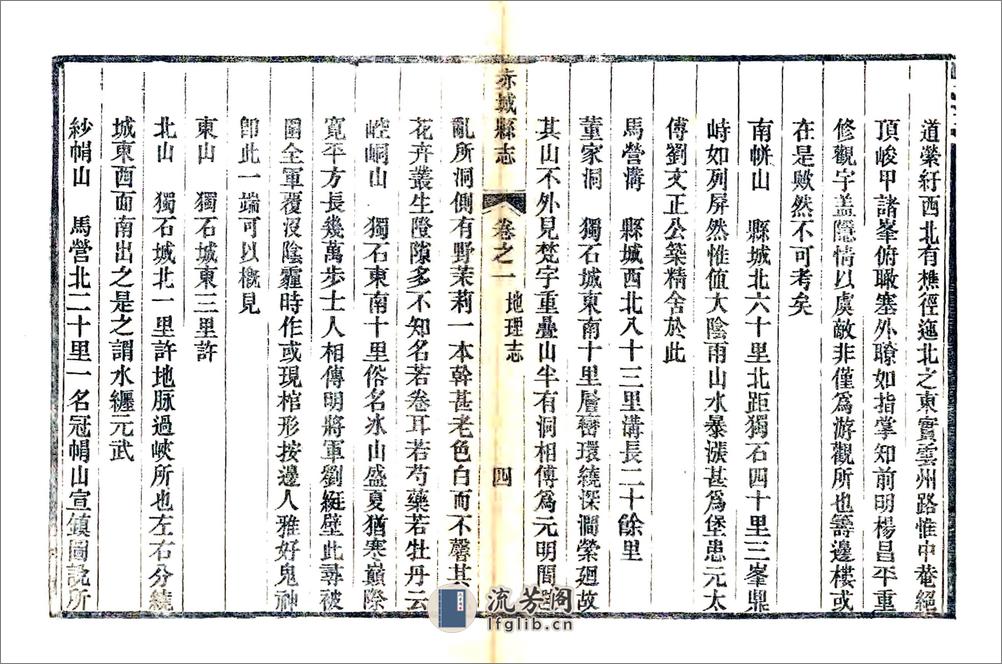 道縈紆西北有樵徑迤北之東實雲州路惟中菴絕
頂峻甲諸峯俯瞰塞外瞭如指掌知前明楊昌平重
修觀字盖隱情以虞敵非僅爲游觀所也籌邊樓或
在是歟然不可考矣
南帡山 縣城北六十里北距獨石四十里三峯鼎
峙如列屏然惟值大陰雨山水暴漲甚爲堡患元太
傅劉文正公築精舍於此
馬營溝 縣城西北八十三里溝長二十餘里
董家洞 獨石城東南十里層巒環繞深澗縈廻故
其山不外見梵字重疊山半有洞相傳爲元明間
赤城縣志 卷之一 地理志 四
亂所洞側有野茉莉一本幹甚老色白而不馨其
花卉叢生隥隙多不知名若卷耳若芍藥若牡丹云
崆峒山 獨石東南十里俗名氷山盛夏猶寒巔際
寬平方長幾萬步士人相傳明將軍劉綎壁此尋被
圍全軍覆沒陰霾時作或現棺形按邊人雅好鬼神
卽此一端可以槪見
東山 獨石城東三里許
北山 獨石城北一里許地脉過峽所也左右分繞
城東西面南出之是之謂水纒元武
紗帽山 馬營北二十里一名冠帽山宣鎮圖說所
流芳阁
lfglib.cn